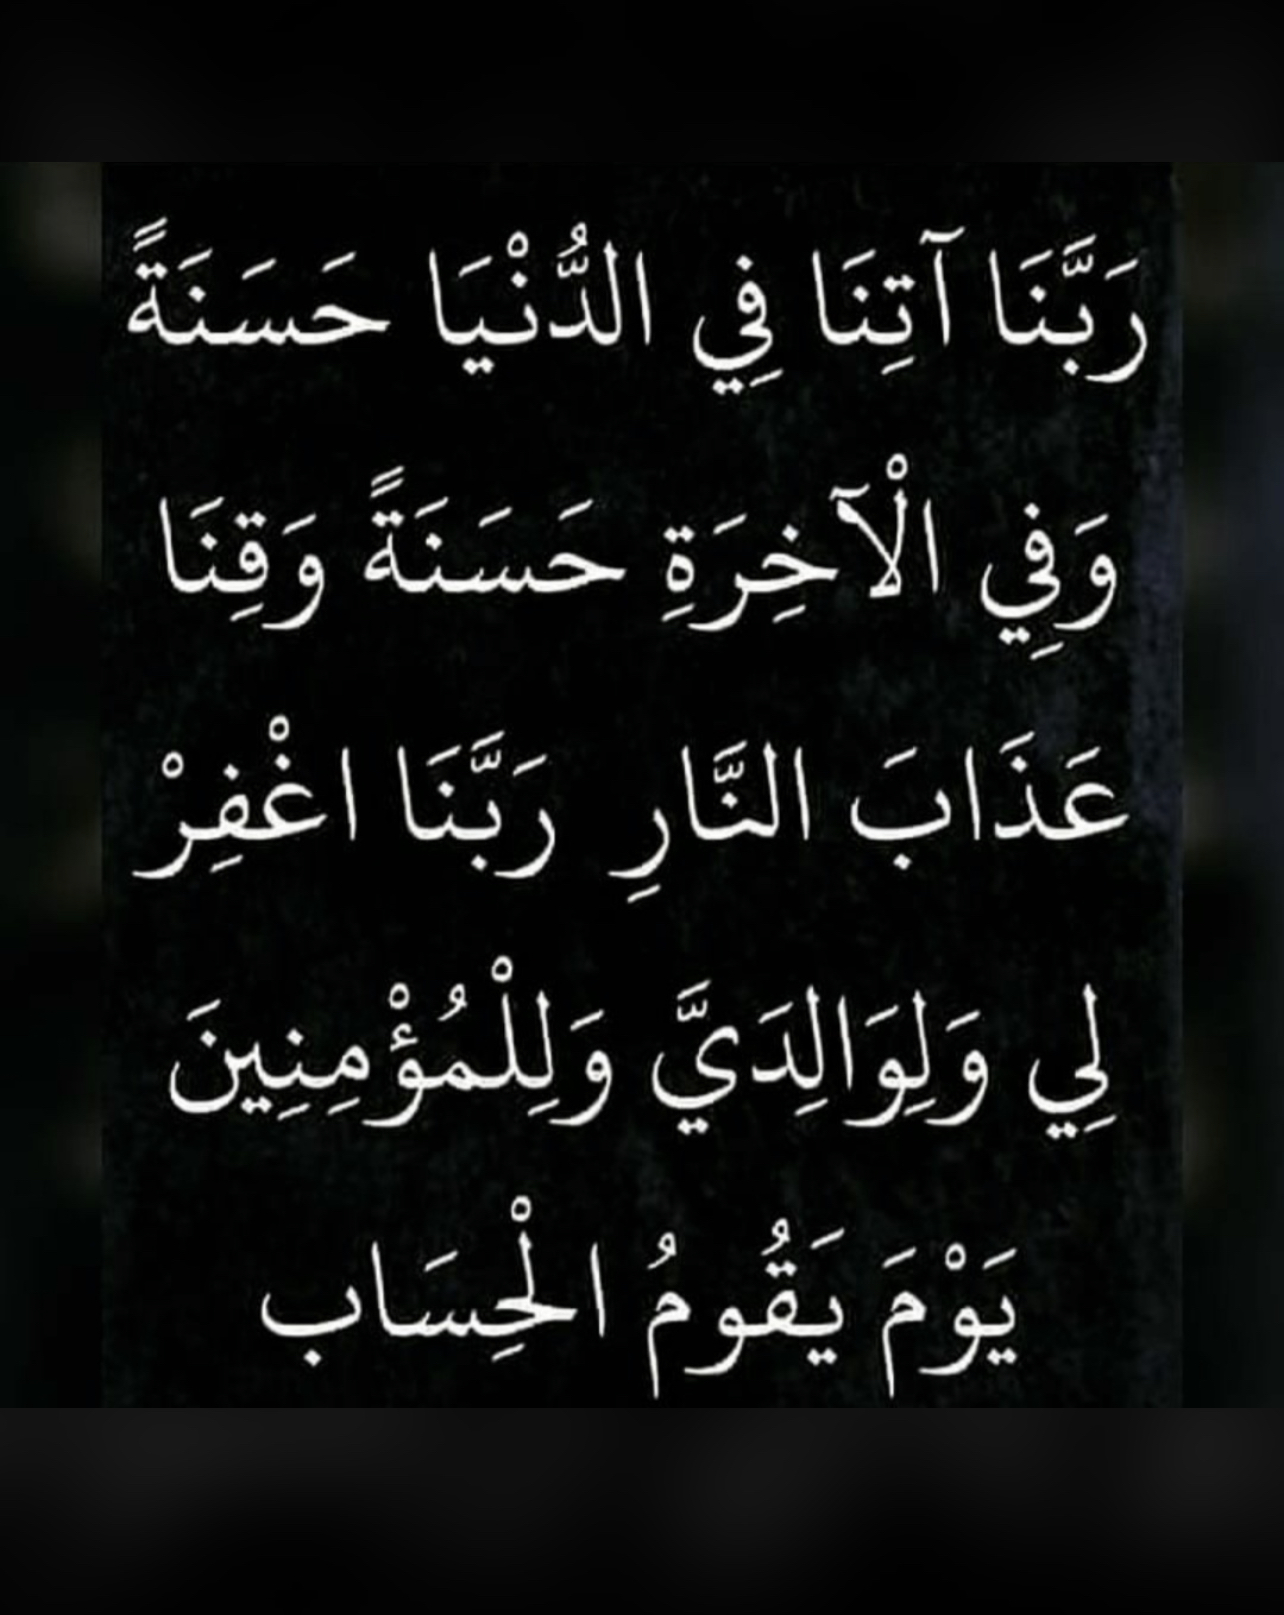 رَبَّنَا آتِنَا فِي الدُّنْيَا حَسَنَةً
وَفِي الْآخِرَةِ حَسَنَةً وَقِنَا
عَذَابَ النَّارِ رَبَّنَا اغْفِرْ
لِي وَلِوَالِدَيَّ وَلِلْمُؤْمِنِينَ
يَوْمَ يَقُومُ الْحِسَاب